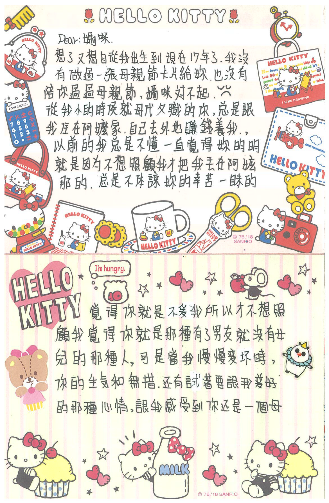 HELLO KITTY
Dear: 媽咪
想了又想自從我出生到現在17年了,我沒
有做過一張母親節卡片給妳,也沒有
陪你過過母親節,媽咪對不起
從我小的時候就母代父職的你,總是讓
我住在阿嬤家,自己去外地賺錢養我,
以前的我總是不懂一直覺得妳的明
就是因為不想照顧我才把我丟在阿嬤
那的,總是不体諒妳的辛苦一昧的
HELLO KITTY
I'm hungry.
覺得你就是不愛我所以才不想照
顧我覺得你就是那種有了男友就沒有女
兒的那種人,可是當我慢慢變壞時,
你的生氣和無措,還有試著要跟我變好
的那種心情,讓我感受到你还是一個母
MILK